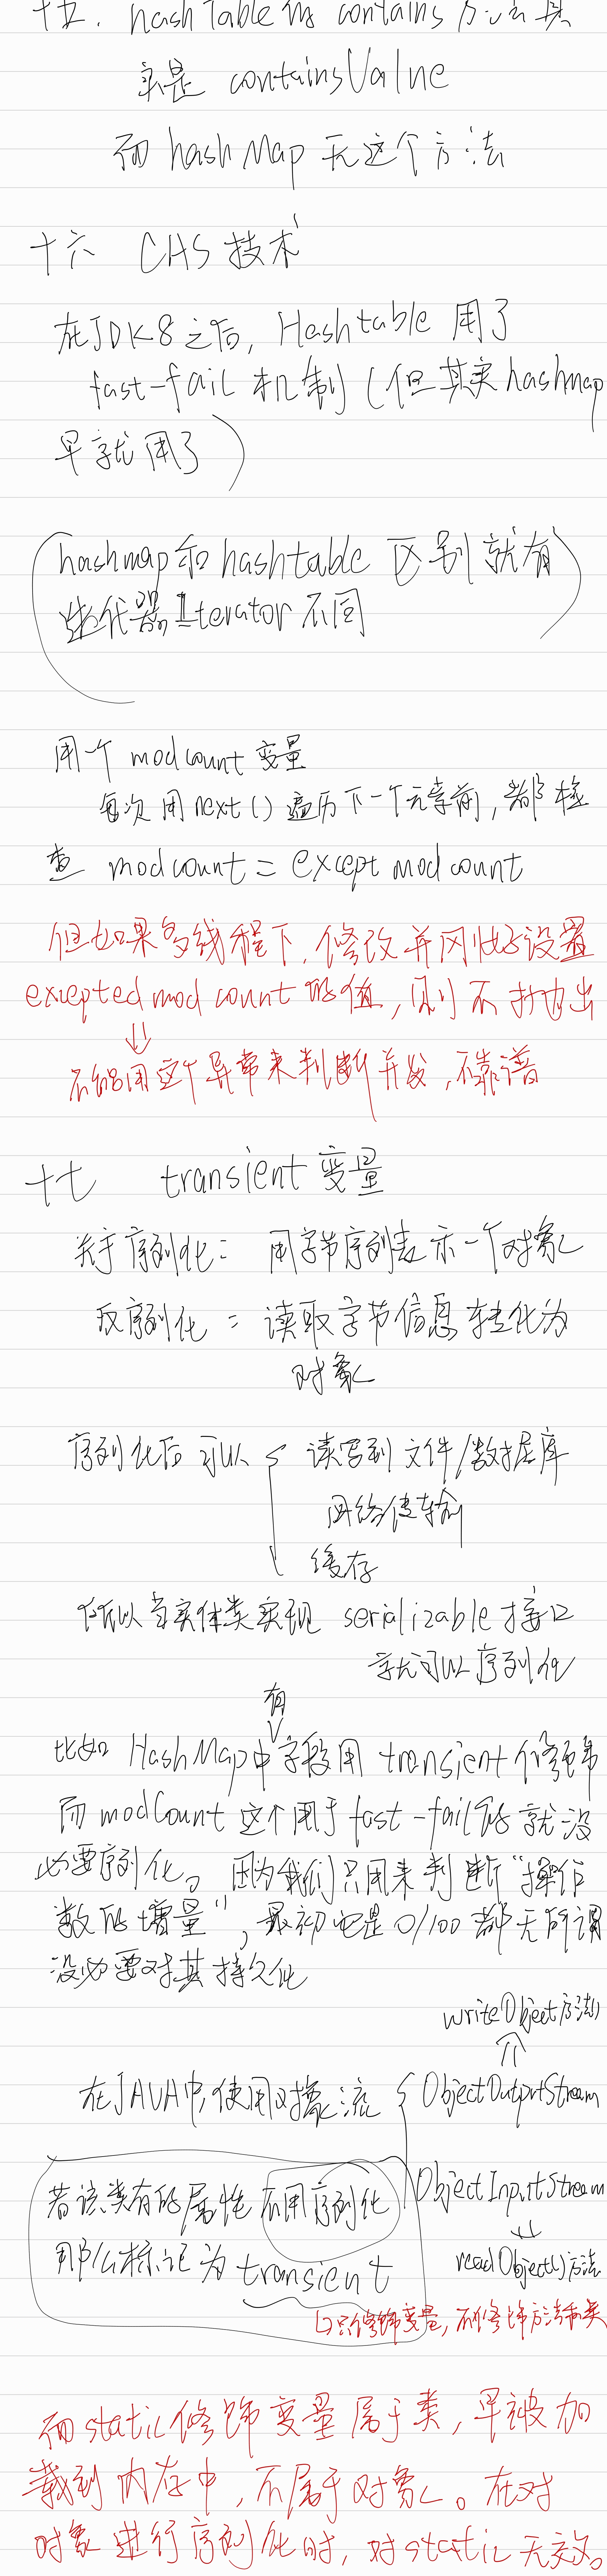 十五. hashTable的 contains方法其
实是 containsValue
而 hashMap 无这个方法
十六 CAS 技术
在JDK8之后, Hashtable 用了
fast-fail 机制 (但其实hashmap
早就用了)
(hashmap和hashtable 区别就有
迭代器Iterator不同)
用个 modcount 变量
每次用next()遍历下一个元素前, 都检
查 modcount = except modcount
但如果多线程下, 修改并刚好设置
excepted mod count 的值, 则不抛出
⇓
不能用这个异常来判断并发, 不靠谱
十七 transient 变量
关于序列化: 用字节序列表示一个对象
反序列化: 读取字节信息转化为
对象
序列化后可以 读写到文件/数据库
网络传输
缓存
所以当实体类实现 serializable 接口
就可以序列化
有
比如 HashMap中字段用 transient修饰
而modCount 这个用于fast-fail的就没
必要序列化。因为我们只用来判断“操作
数的增量”, 最初也是0/100都无所谓
没必要对其持久化
writeObject方法()
⇑
在JAVA中, 使用对象流 { ObjectOutputStream
ObjectInputStream
⇓
readObject()方法
若该类有的属性不用序列化
那么标记为 transient
↳只修饰变量, 不修饰方法和类
而static修饰变量属于类, 早被加
载到内存中, 不属于对象。在对
对象进行序列化时, 对static无效。